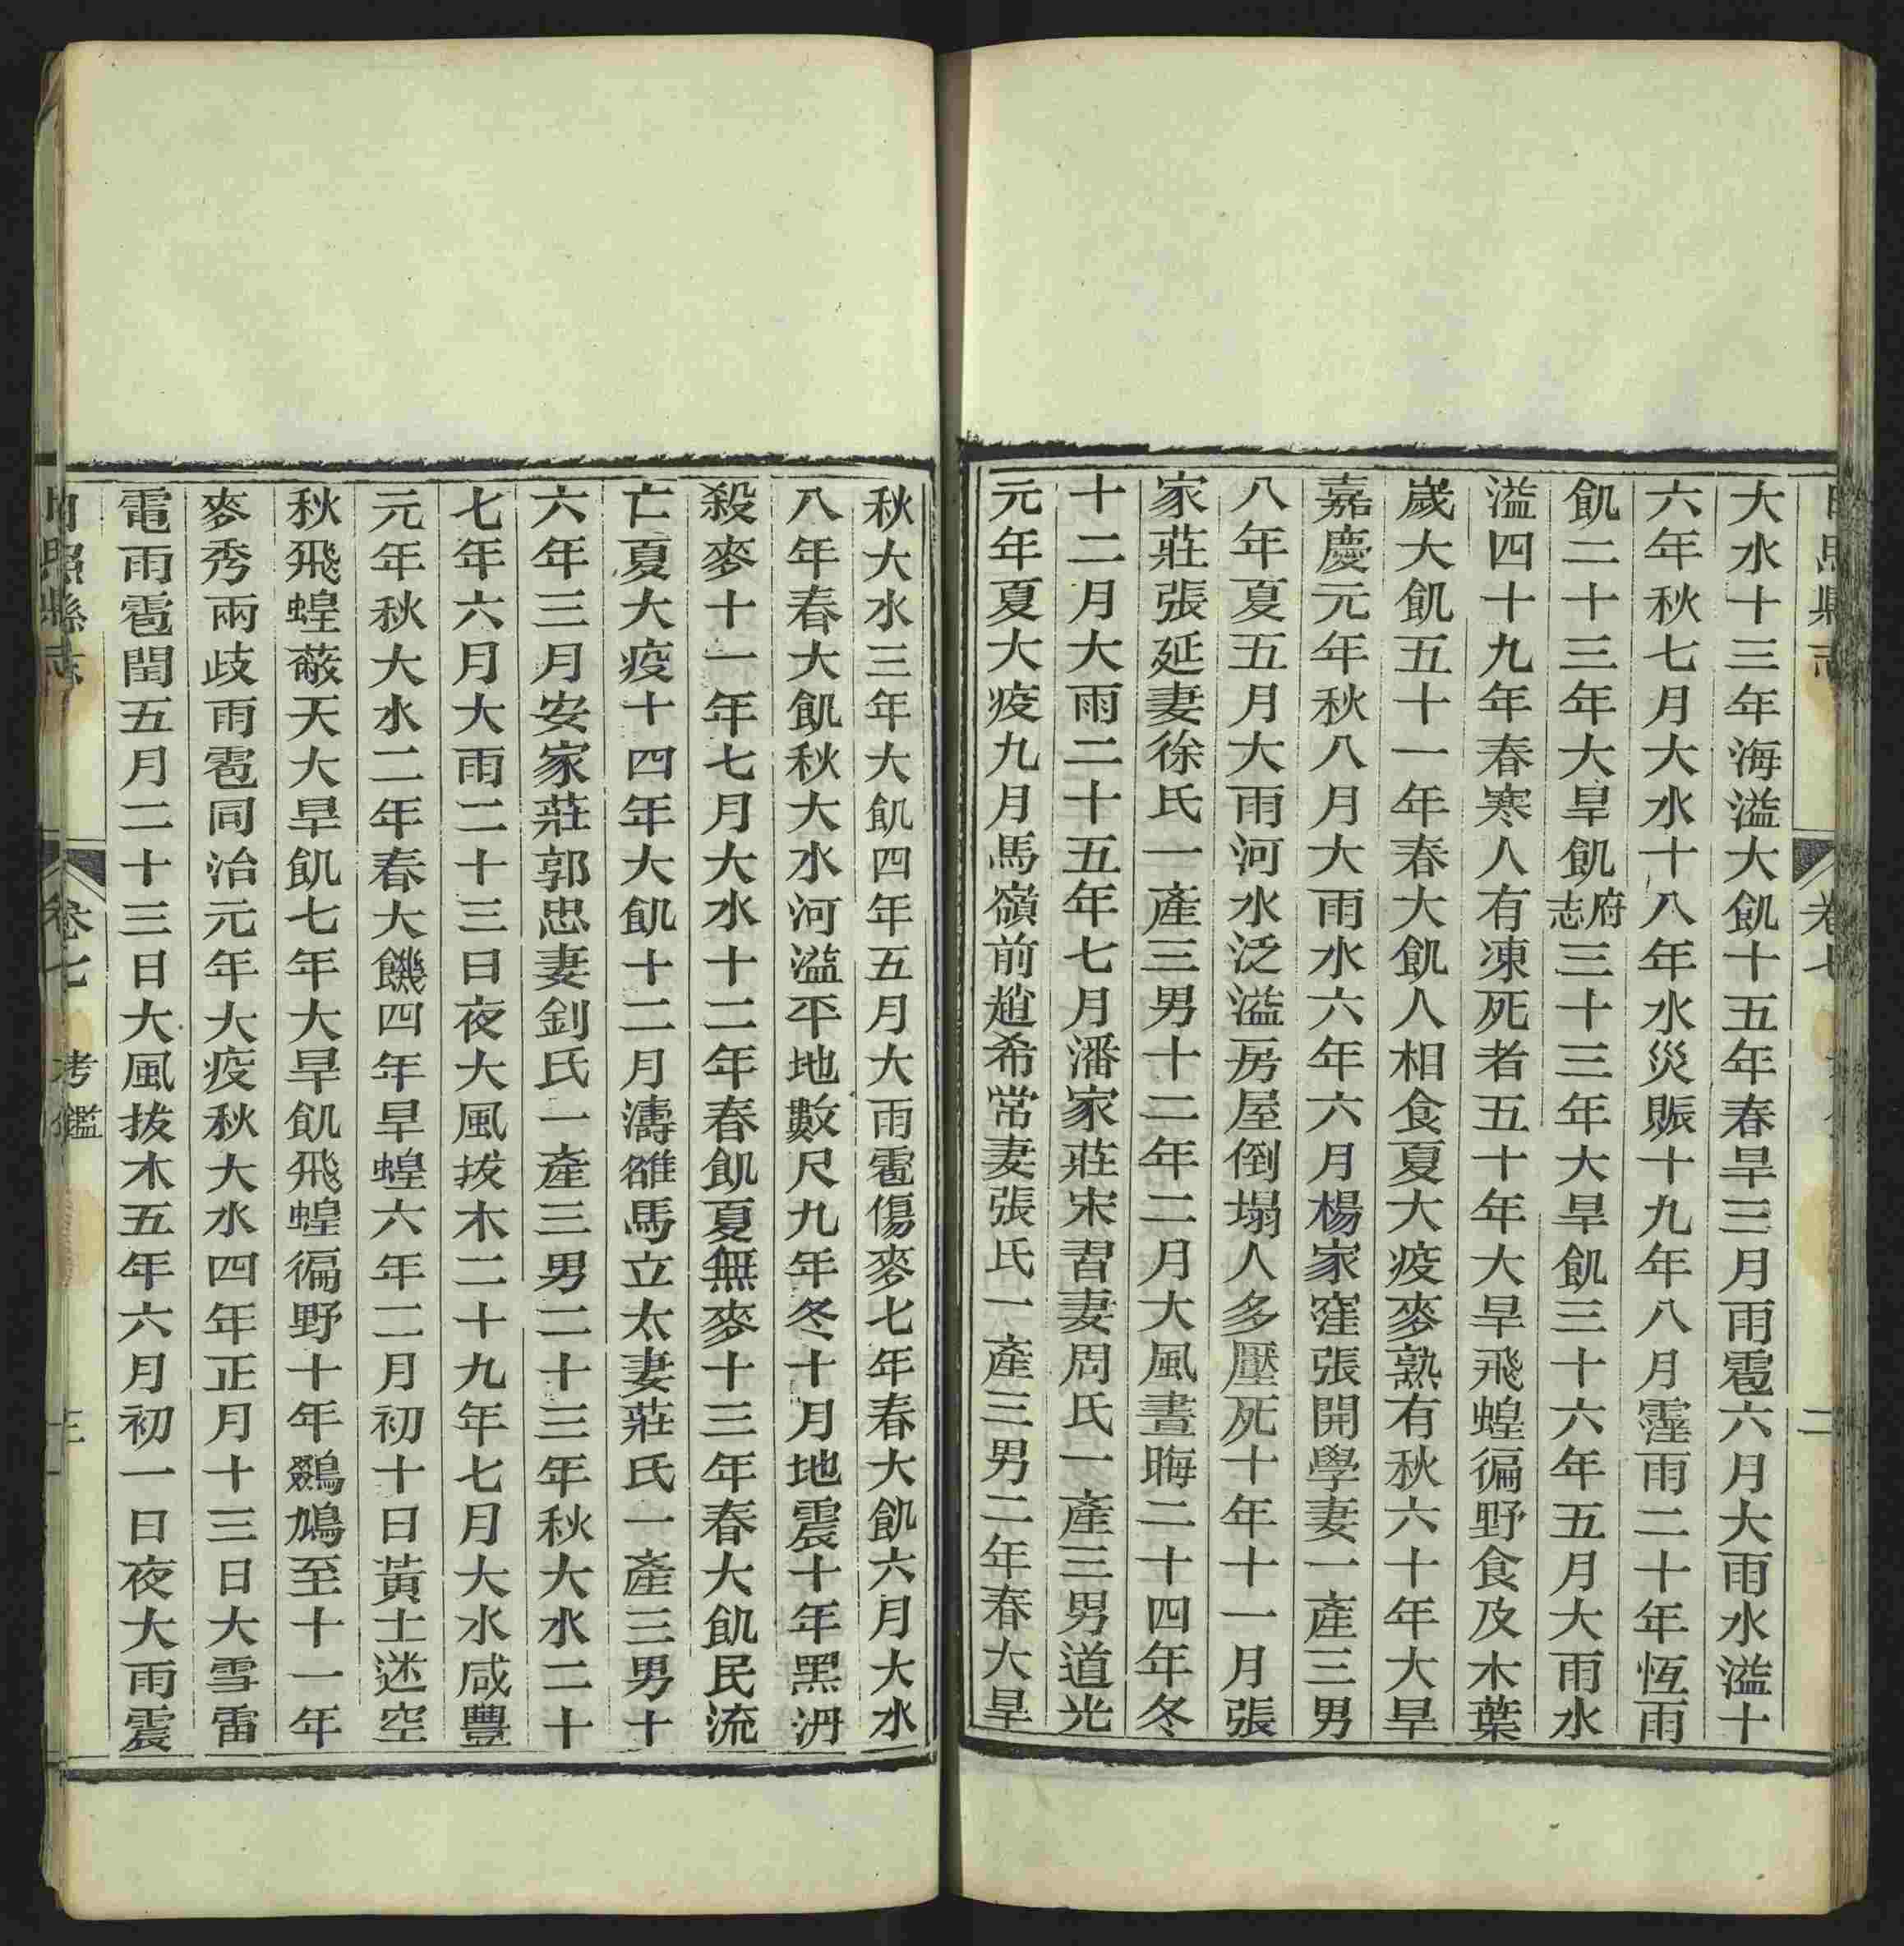 大水十三年海溢大飢十五年春旱三月雨雹六月大雨水溢十
六年秋七月大水十八年水災賑十九年八月霪雨二十年恆雨
飢二十三年大旱飢府志三十三年大旱飢三十六年五月大雨水
溢四十九年春寒人有凍死者五十年大旱飛蝗徧野食及木葉
歲大飢五十一年春大飢人相食夏大疫麥熟有秋六十年大旱
嘉慶元年秋八月大雨水六年六月楊家窪張開學妻一產三男
八年夏五月大雨河水泛溢房屋倒塌人多壓死十年十一月張
家莊張延妻徐氏一產三男十二年二月大風晝晦二十四年冬
十二月大雨二十五年七月潘家莊宋習妻周氏一產三男道光
元年夏大疫九月馬嶺前趙希常妻張氏一產三男二年春大旱
秋大水三年大飢四年五月大雨雹傷麥七年春大飢六月大水
八年春大飢秋大水河溢平地數尺九年冬十月地震十年黑沴
殺麥十一年七月大水十二年春飢夏無麥十三年春大飢民流
亡夏大疫十四年大飢十二月濤雒馬立太妻莊氏一產三男十
六年三月安家莊郭忠妻劉氏一產三男二十三年秋大水二十
七年六月大雨二十三日夜大風拔木二十九年七月大水咸豐
元年秋大水二年春大饑四年旱蝗六年二月初十日黃土迷空
秋飛蝗蔽天大旱飢七年大旱飢飛蝗徧野十年鷄鳩至十一年
麥秀兩歧雨雹同治元年大疫秋大水四年正月十三日大雪雷
電雨雹閏五月二十三日大風拔木五年六月初一日夜大雨震
日照縣志 卷七 考鑑 三